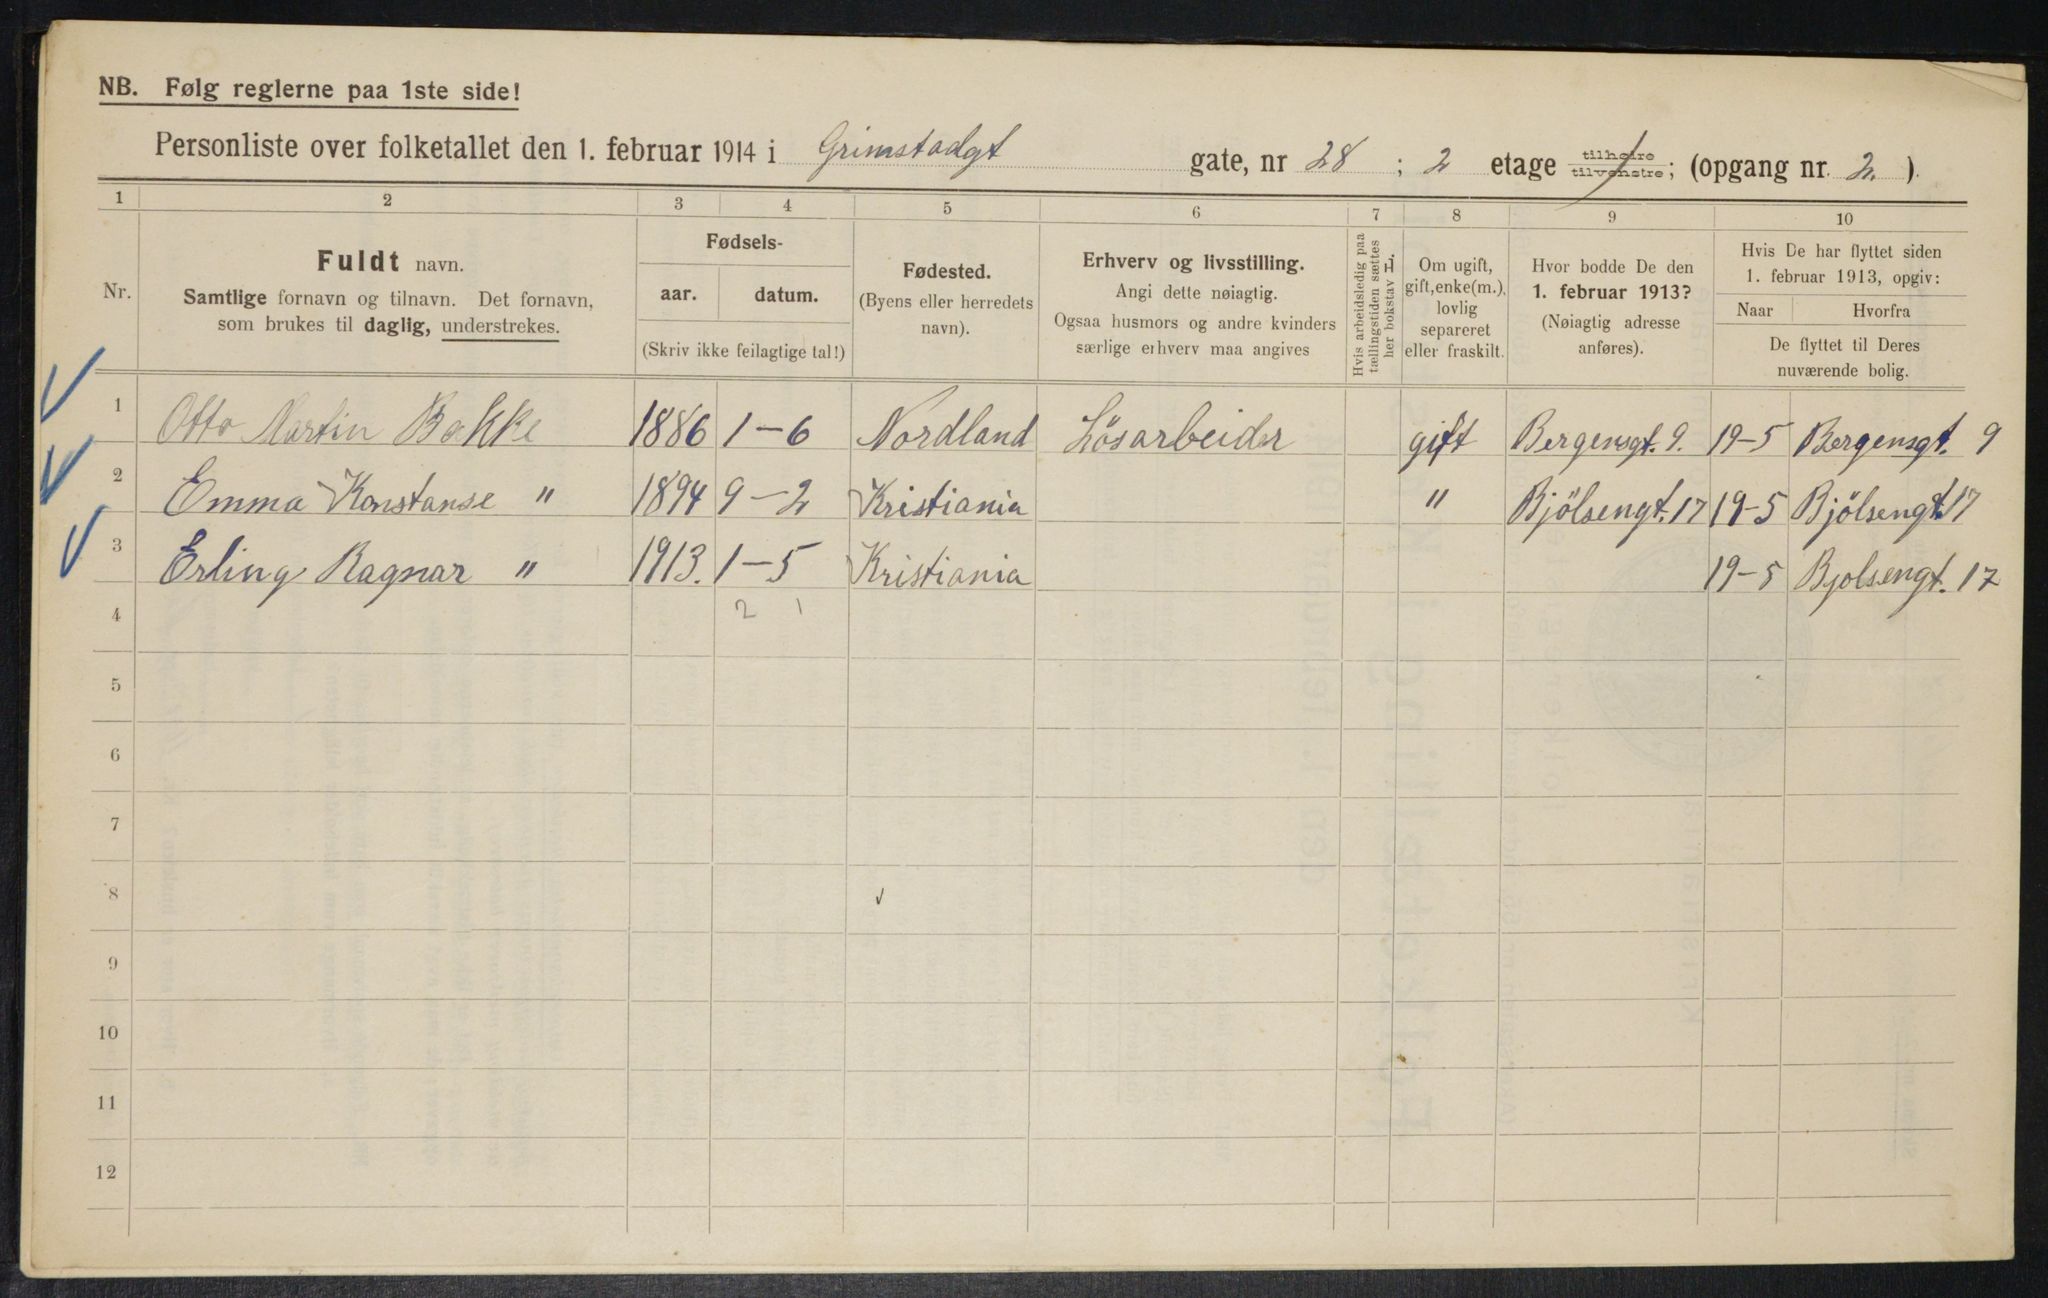 NB. Følg reglerne paa 1ste side!
Personliste over folketallet den 1. februar 1914 i Grimstadgt gate, nr 28 ; 2 etage tilhøire tilvenstre; (opgang nr. 2. ).
1 2 3 4 5 6 7 8 9 10
Nr.
Fuldt navn.
Samtlige fornavn og tilnavn. Det fornavn,
som brukes til daglig, understrekes.
Fødsels-
aar. datum.
(Skriv ikke feilagtige tal!)
Fødested.
(Byens eller herredets
navn).
Erhverv og livsstilling.
Angi dette nøiagtig.
Ogsaa husmors og andre kvinders
særlige erhverv maa angives
Hvis arbeidsledig paa
tællingstiden sættes
her bokstav L.
Om ugift,
gift, enke(m.),
lovlig
separeret
eller fraskilt.
Hvor bodde De den
1. februar 1913?
(Nøiagtig adresse
anføres).
Hvis De har flyttet siden
1. februar 1913, opgiv:
Naar Hvorfra
De flyttet til Deres
nuværende bolig.
1 Otto Martin Bakke 1886 1-6 Nordland Lösarbeider gift Bergensgt. 9. 19-5 Bergensgt. 9
2 Emma Konstanse " 1894 9-2 Kristiania " Bjölsengt. 17 19-5 Bjölsengt. 17
3 Erling Ragnar " 1913. 1-5 Kristiania 19-5 Bjolsengt. 17
4 2 1
5
6
7
8
9
10
11
12